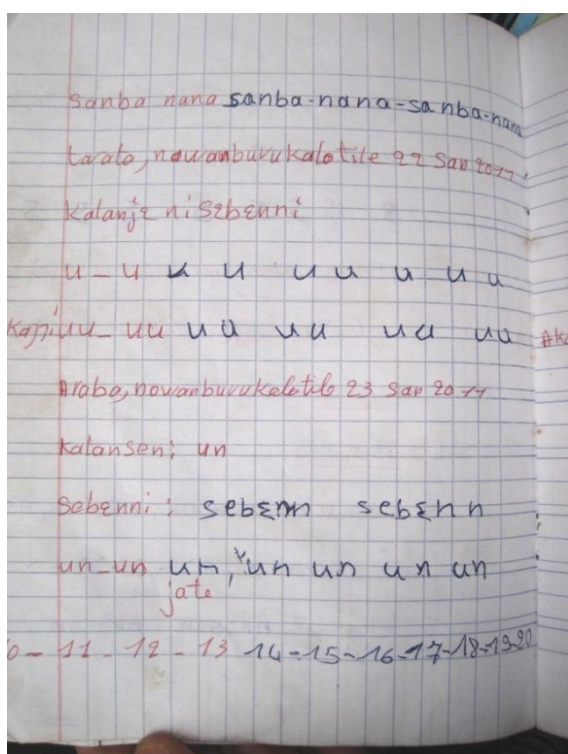 Sanba nana sanba-nana-sanba-nana
tarata, nowanburukalotile 22 San 2011
Kalanjɛ ni sɛbɛnni
u - u u u u u u u u
Kaɲi uu - uu uu uu uu uu
Araba, nowanburukalotile 23 San 2011
Kalansen: un
Sebɛnni: sebɛnn sebɛnn
un-un un, un un un un
jate
- 11 - 12 - 13 14-15-16-17-18-19-20